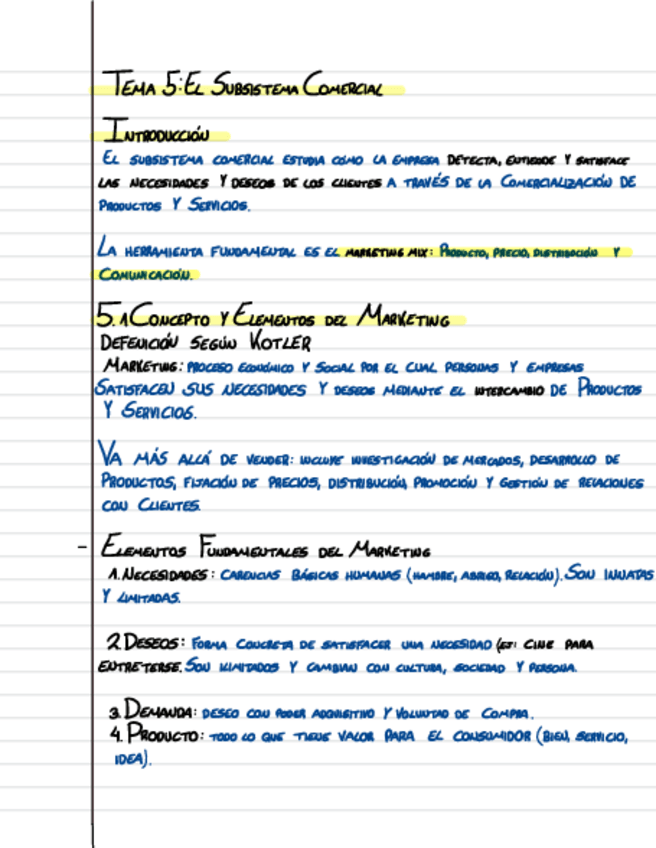 TEMA 5: EL SUBSISTEMA COMERCIAL
INTRODUCCIÓN
EL SUBSISTEMA COMERCIAL ESTUDIA CÓMO LA EMPRESA DETECTA, ENTIENDE Y SATISFACE
LAS NECESIDADES Y DESEOS DE LOS CLIENTES A TRAVÉS DE LA COMERCIALIZACIÓN DE
PRODUCTOS Y SERVICIOS.
LA HERRAMIENTA FUNDAMENTAL ES EL MARKETING MIX: PRODUCTO, PRECIO, DISTRIBUCIÓN Y
COMUNICACIÓN.
5.1 CONCEPTO Y ELEMENTOS DEL MARKETING
DEFENICIÓN SEGÚN KOTLER
MARKETING: PROCESO ECONÓMICO Y SOCIAL POR EL CUAL PERSONAS Y EMPRESAS
SATISFACEN SUS NECESIDADES Y DESEOS MEDIANTE EL INTERCAMBIO DE PRODUCTOS
Y SERVICIOS.
VA MÁS ALLÁ DE VENDER: INCLUYE INVESTIGACIÓN DE MERCADOS, DESARROLLO DE
PRODUCTOS, FIJACIÓN DE PRECIOS, DISTRIBUCIÓN, PROMOCIÓN Y GESTIÓN DE RELACIONES
CON CLIENTES.
- ELEMENTOS FUNDAMENTALES DEL MARKETING
1. NECESIDADES: CARENCIAS BÁSICAS HUMANAS (HAMBRE, ABRIGO, RELACIÓN). SON INNATAS
Y LIMITADAS.
2. DESEOS: FORMA CONCRETA DE SATISFACER UNA NECESIDAD (EJ: CINE PARA
ENTRETERSE. SON ILIMITADOS Y CAMBIAN CON CULTURA, SOCIEDAD Y PERSONA.
3. DEMANDA: DESEO CON PODER ADQUISITIVO Y VOLUNTAD DE COMPRA.
4. PRODUCTO: TODO LO QUE TIENE VALOR PARA EL CONSUMIDOR (BIEN, SERVICIO,
IDEA).